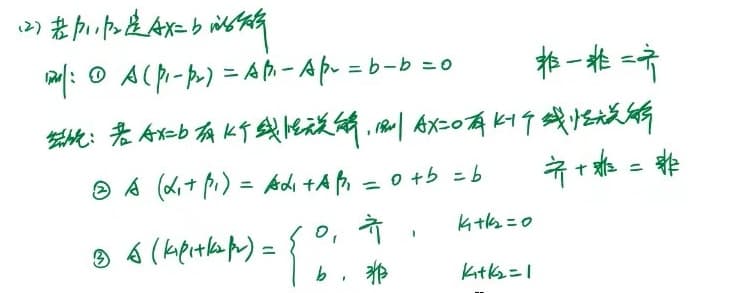 (2) 若β₁,β₂是Ax=b的解
则: ① A(β₁-β₂)=Aβ₁-Aβ₂=b-b=0 非-非=齐
结论: 若Ax=b有k个线性无关解,则Ax=0有k-1个线性无关解
② A(α₁+β₁)=Aα₁+Aβ₁=0+b=b 齐+非=非
③ A(k₁β₁+k₂β₂)={ 0, 齐, k₁+k₂=0
b, 非 k₁+k₂=1